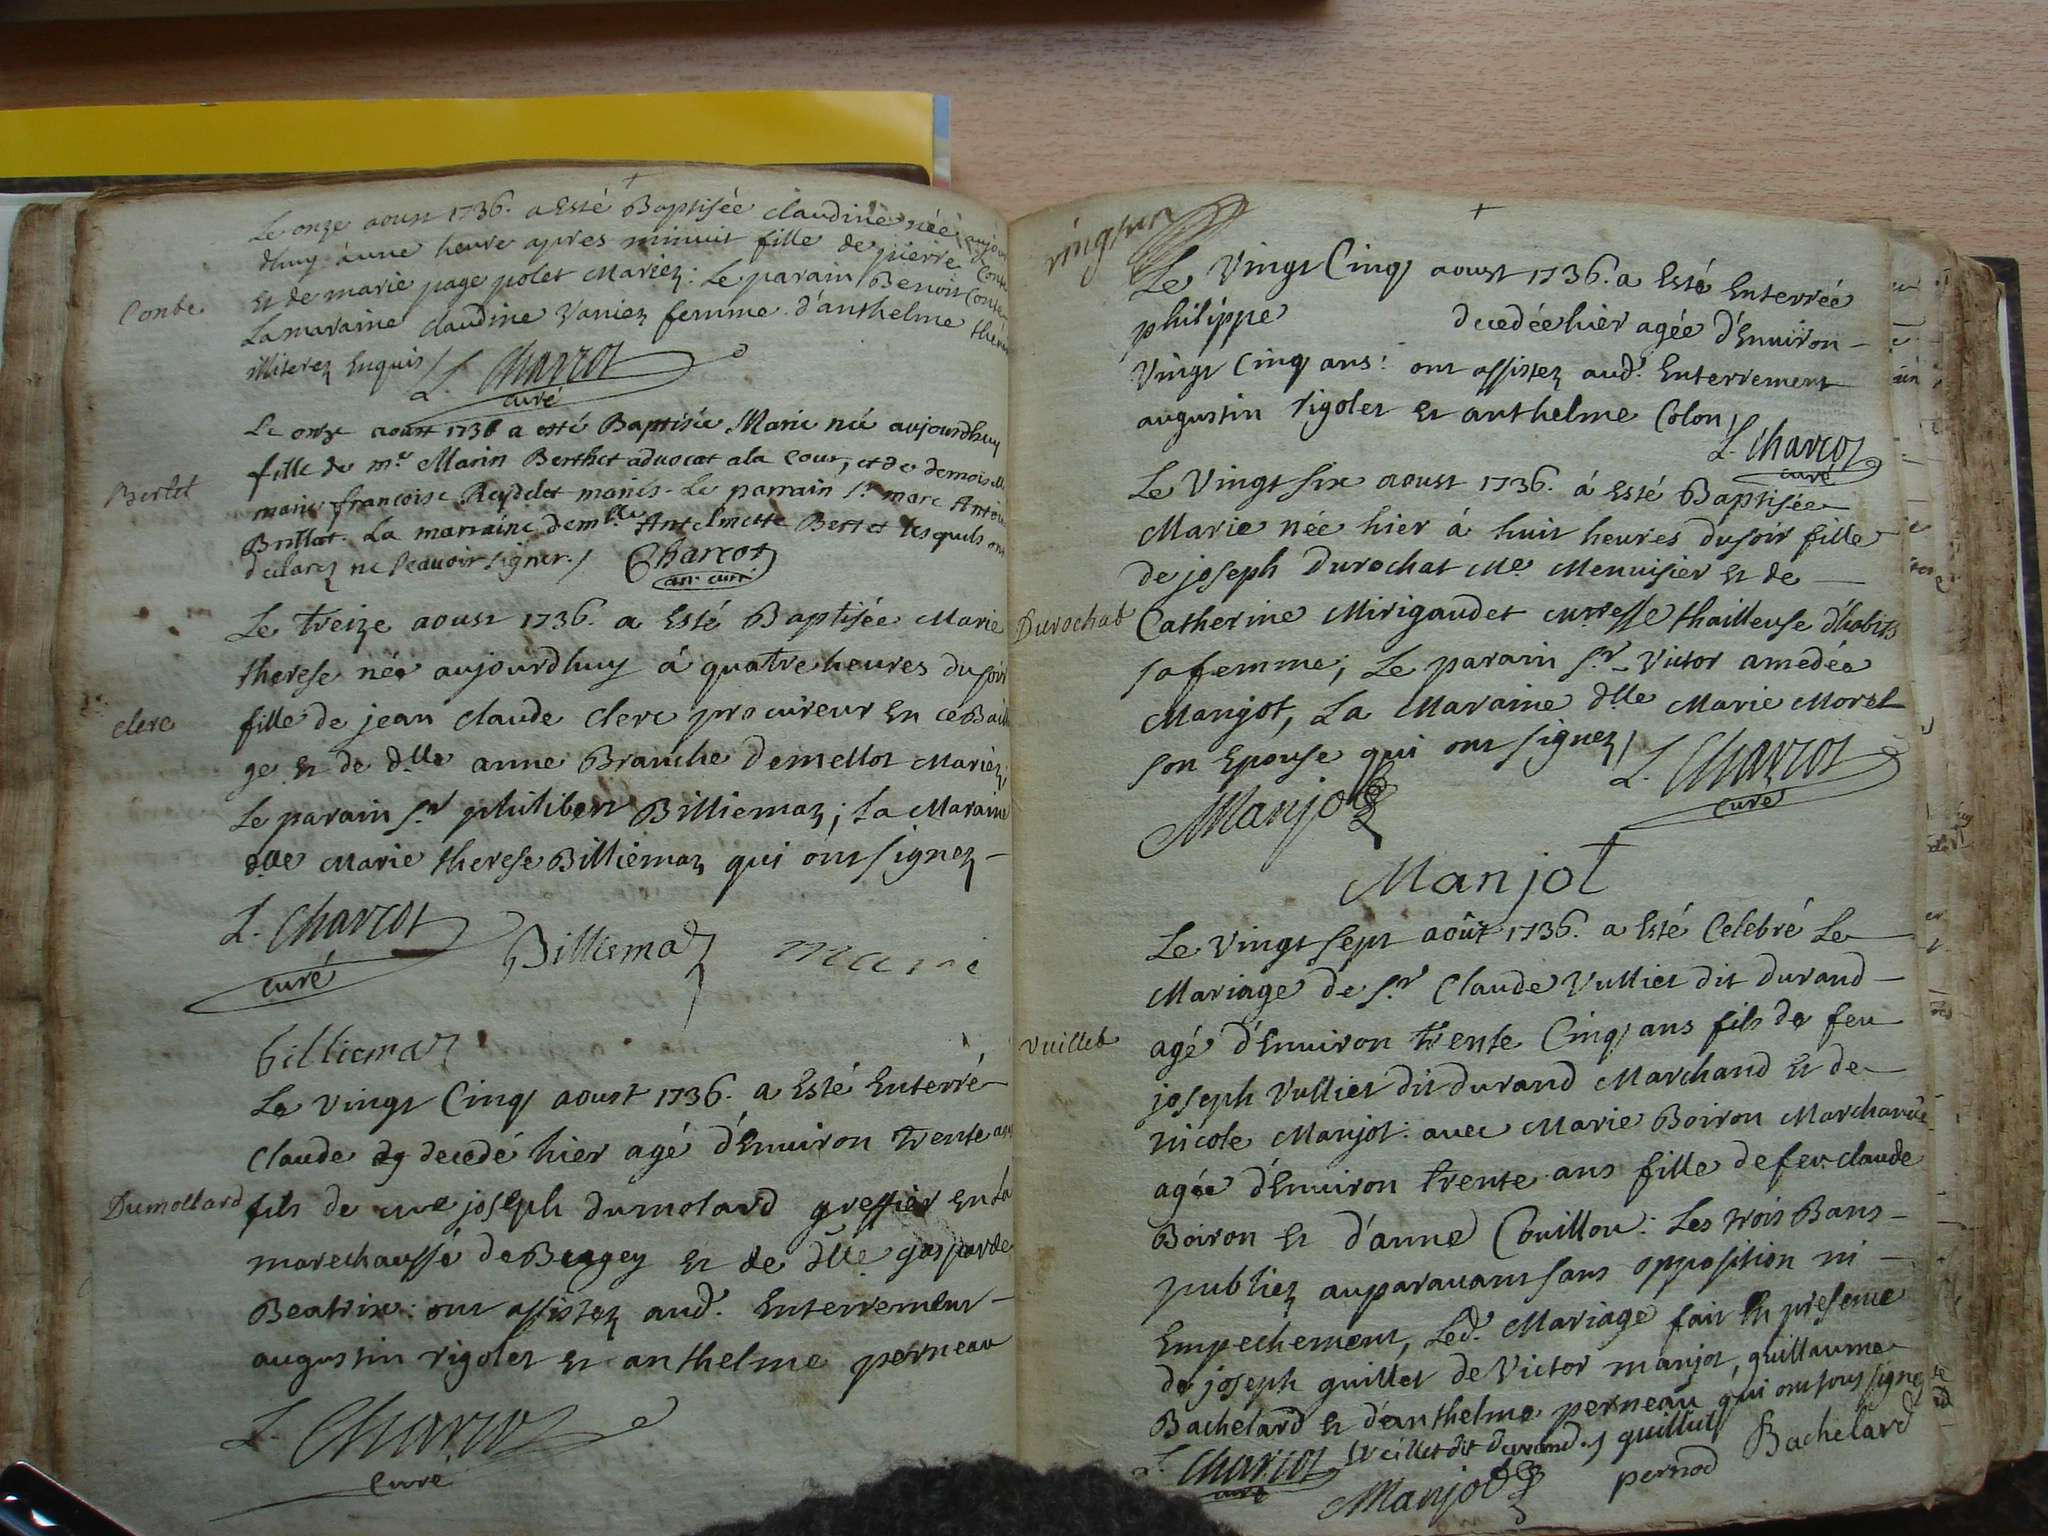 Le onze aoust 1736. a Esté Baptisée claudine née aujour
dhuy à une heure apres minuit fille de pierre Conte
Conte
Et de marie page polet Mariez: Le parain Benoit Conte
La maraine claudine Vaniez femme d'anthelme
illiterez Enquis /
L. Charcot
curé
Le onze aoust 1736 a esté Baptisée Marie née aujourdhuy
fille de me. Marin Berthet advocat a la Cour, et de demoiselle
Bertet
marie francoise Reydelet mariés. Le parrain sr. marc Antoine
Brillat. La marraine demlle Antelmette Bertet lesquels ont
déclarez ne scavoir signer. / Charcot
an. curé
Le treize aoust 1736. a Esté Baptisée Marie
therese née aujourdhuy á quatre heures du soir
clerc
fille de jean claude clerc procureur En ce Bailla
ge Et de dlle anne Branche Demellot Mariéz;
Le parain sr philibert Billiemaz; La Maraine
dlle Marie therese Billiemaz qui ont signez
L. Charcot
curé
Billiemaz
marie
billiemaz
Le vingt Cinq aoust 1736. a Esté Enterré
Claude decedé hier agé d'Environ trente ans
Dumollard
fils de me joseph dumolard greffier En La
marechaussé de Bugey Et de dlle gasparde
Beatrix: ont assistez aud. Enterrement
augustin rigolet Et anthelme perneau
L. Charcot
Curé
vingtun
Le Vingt Cinq aoust 1736. a Esté Enterrée
philippe decedée hier agée d'Environ
Vingt Cinq ans: ont assistez aud. Enterrement
augustin rigolet Et anthelme Colon /
L. Charcot
curé
Le Vingt six aoust 1736. á Esté Baptisée
Marie née hier á huit heures du soir fille
de joseph Durochat Me. Menuisier Et de
Durochat
Catherine Mirigaudet Mtresse thailleuse d'habits
sa femme; Le parain sr. Victor amedée
Manjot, La Maraine dlle Marie Morel
son Epouse qui ont signez /
L. Charcot
curé
Manjot
Manjot
Le Vingt sept août 1736. a Esté Celebré Le
Mariage de sr Claude Vulliet dit durand
Vuillet
agé d'Environ trente Cinq ans fils de feu
joseph Vulliet dit durand Marchand Et de
nicole Manjot: avec Marie Boiron Marchande
agée d'Environ trente ans fille de feu claude
Boiron Et d'anne Couillou: Les trois Bans
publiez auparavant sans opposition ni
Empechement, Led. Mariage fait En presence
de joseph guillet de Victor manjot, guillaume
Bachelard Et d'anthelme perneau qui ont sous signe
L. Charcot
curé
Vuillet dit durand. guillet
Manjot
pernod
Bachelard